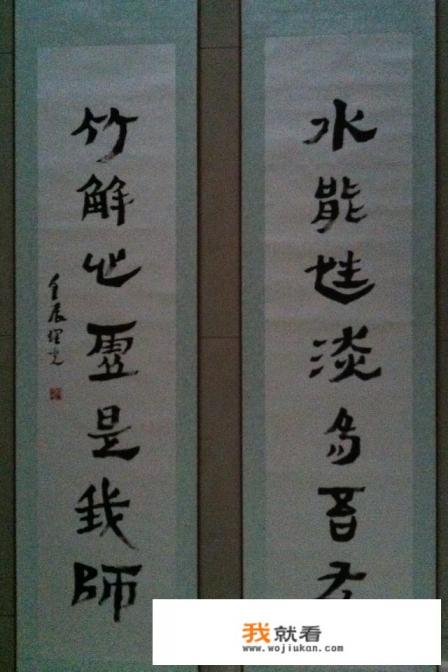 水能性淡為吾友
竹解心虛是我師
壬辰
我就看
www.wojiukan.com